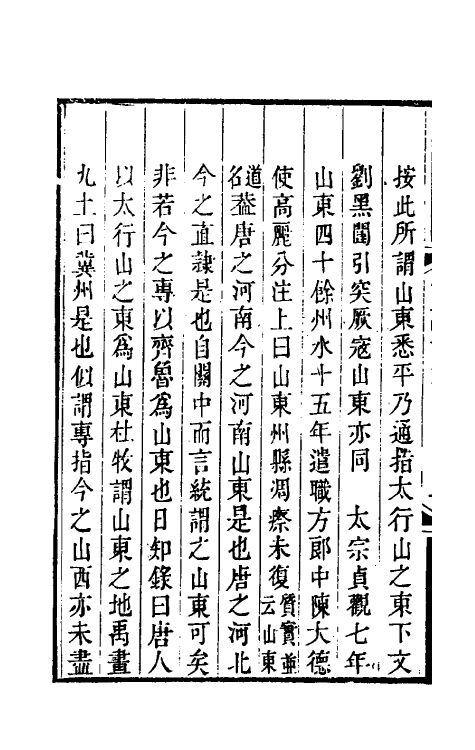 按此所謂山東悉平乃通指太行山之東下文
劉黑闥引突厥寇山東亦同　太宗貞觀七年
山東四十餘州水十五年遣職方郎中陳大德
使高麗分注上曰山東州縣凋瘵未復質實並云山東
道名葢唐之河南今之河南山東是也唐之河北
今之直隸是也自關中而言統謂之山東可矣
非若今之專以齊魯爲山東也日知錄曰唐人
以太行山之東爲山東杜牧謂山東之地禹畫
九土曰冀州是也似謂專指今之山西亦未盡